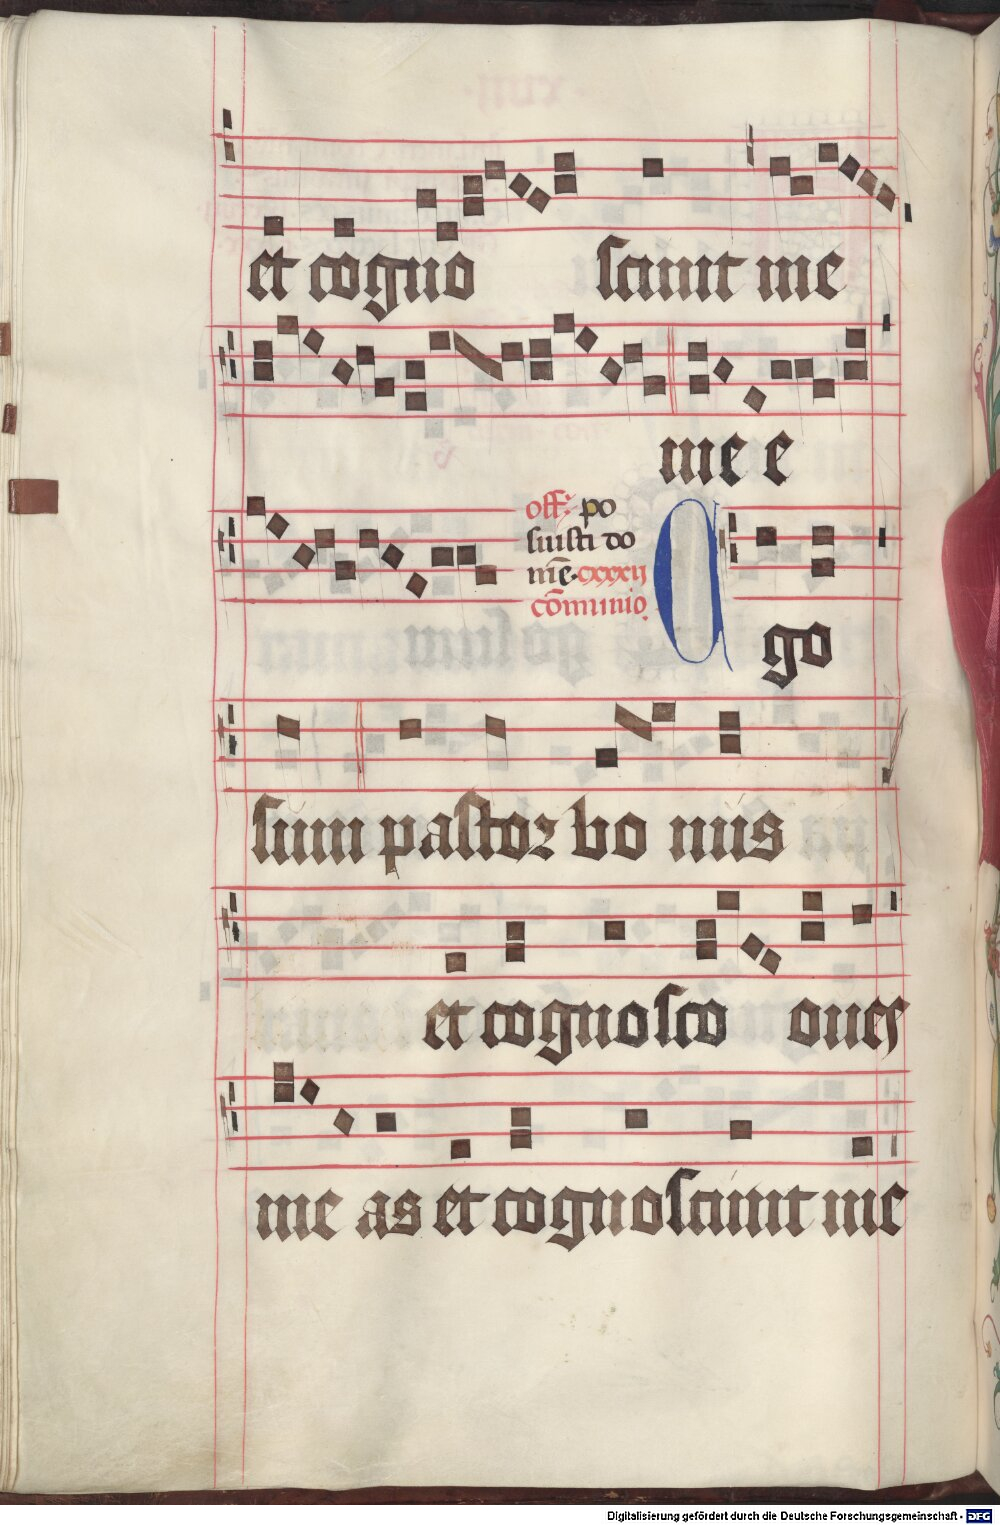 et cogno scunt me
me e
off. po
suisti do
mē. cxxxij
cōmunio.
Ego
sum pastor bo nus
et cognosco oues
me as et cognoscunt me
Digitalisierung gefördert durch die Deutsche Forschungsgemeinschaft - DFG